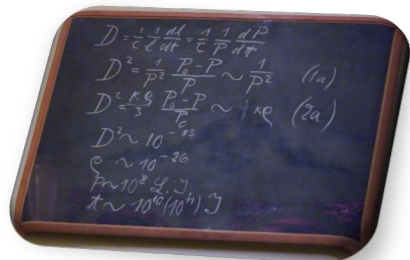 D = 1/c 1/l dl/dt = 1/c 1/P dP/dt
D² = 1/P² P₀-P/P ~ 1/P² (1a)
D² = κρ/3 P₀-P/P ~ κρ (2a)
D² ~ 10⁻⁵³
ρ ~ 10⁻²⁶
P ~ 10⁸ L. J.
t ~ 10¹⁰(10¹¹) J